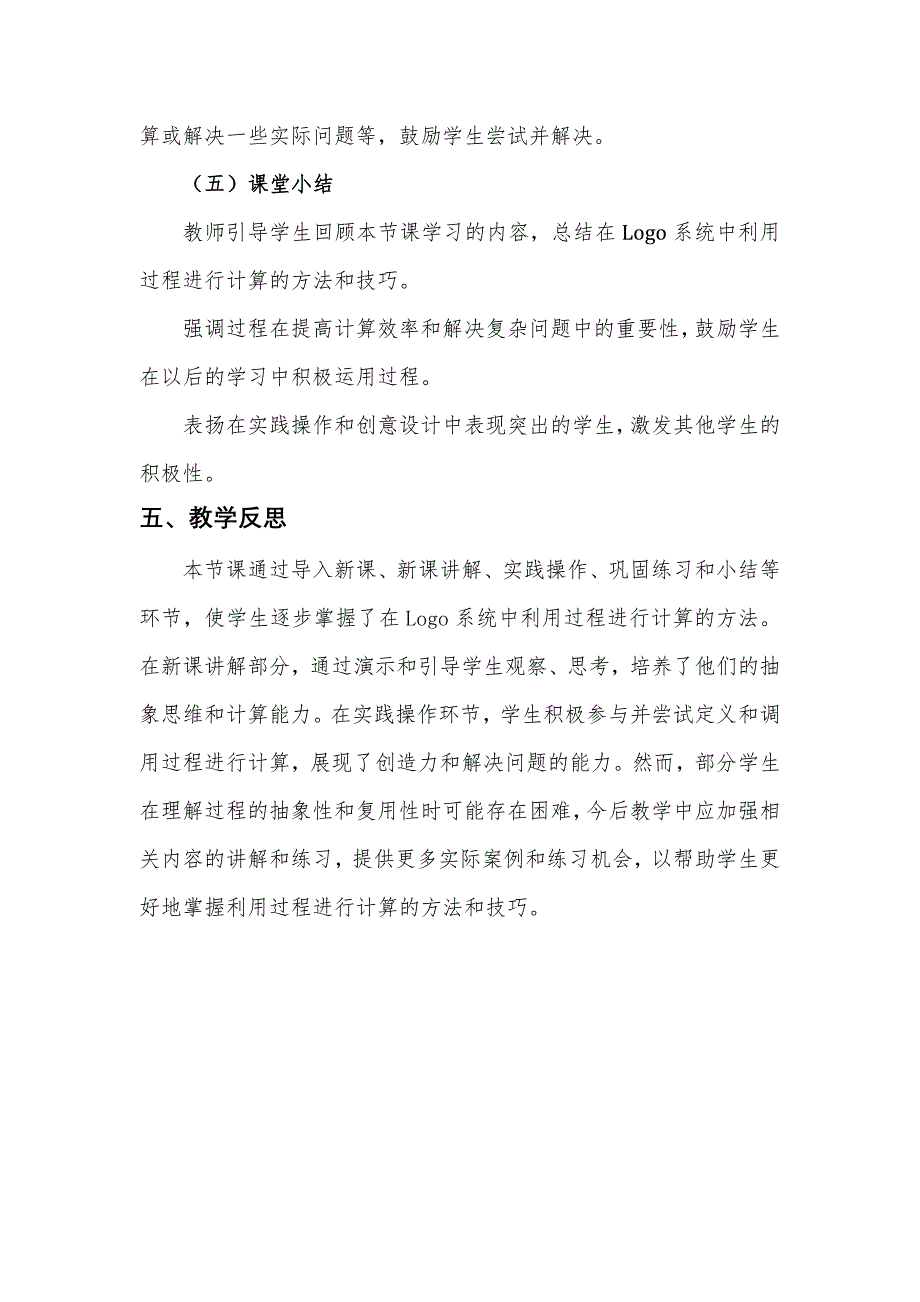 算或解决一些实际问题等，鼓励学生尝试并解决。
（五）课堂小结
教师引导学生回顾本节课学习的内容，总结在 Logo 系统中利用
过程进行计算的方法和技巧。
强调过程在提高计算效率和解决复杂问题中的重要性，鼓励学生
在以后的学习中积极运用过程。
表扬在实践操作和创意设计中表现突出的学生，激发其他学生的
积极性。
五、教学反思
本节课通过导入新课、新课讲解、实践操作、巩固练习和小结等
环节，使学生逐步掌握了在 Logo 系统中利用过程进行计算的方法。
在新课讲解部分，通过演示和引导学生观察、思考，培养了他们的抽
象思维和计算能力。在实践操作环节，学生积极参与并尝试定义和调
用过程进行计算，展现了创造力和解决问题的能力。然而，部分学生
在理解过程的抽象性和复用性时可能存在困难，今后教学中应加强相
关内容的讲解和练习，提供更多实际案例和练习机会，以帮助学生更
好地掌握利用过程进行计算的方法和技巧。